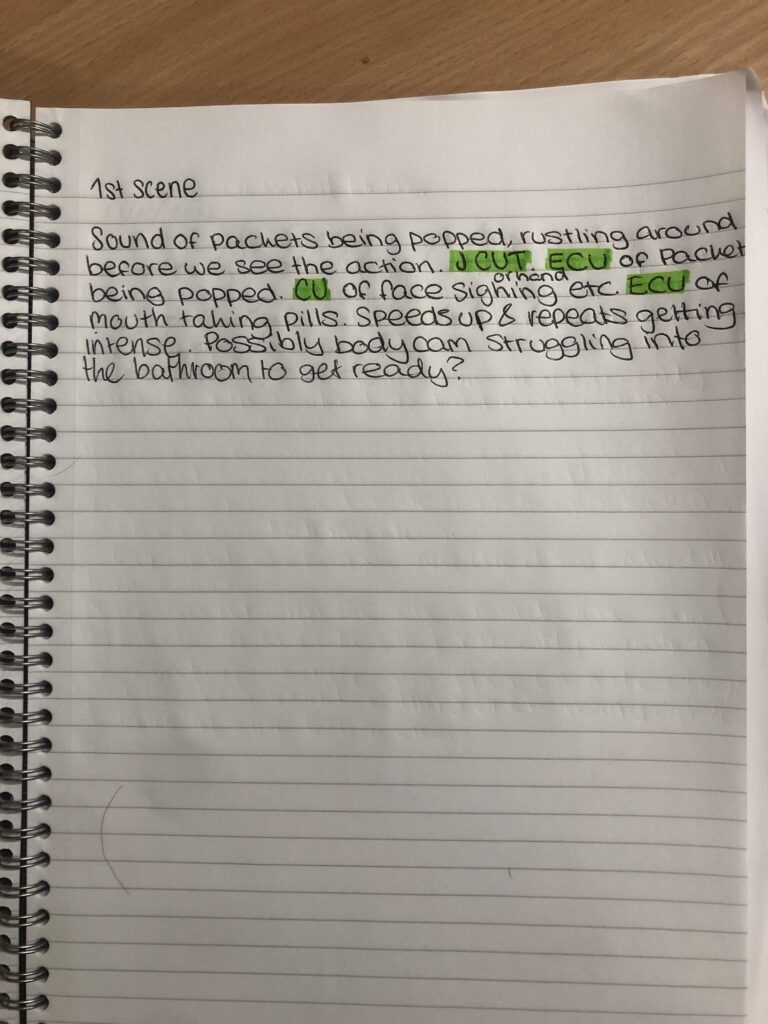 1st scene
Sound of packets being popped, rustling around
before we see the action. J CUT. ECU of packet
being popped. CU of face or hand sighing etc. ECU of
mouth taking pills. Speeds up & repeats getting
intense. Possibly body cam struggling into
the bathroom to get ready?